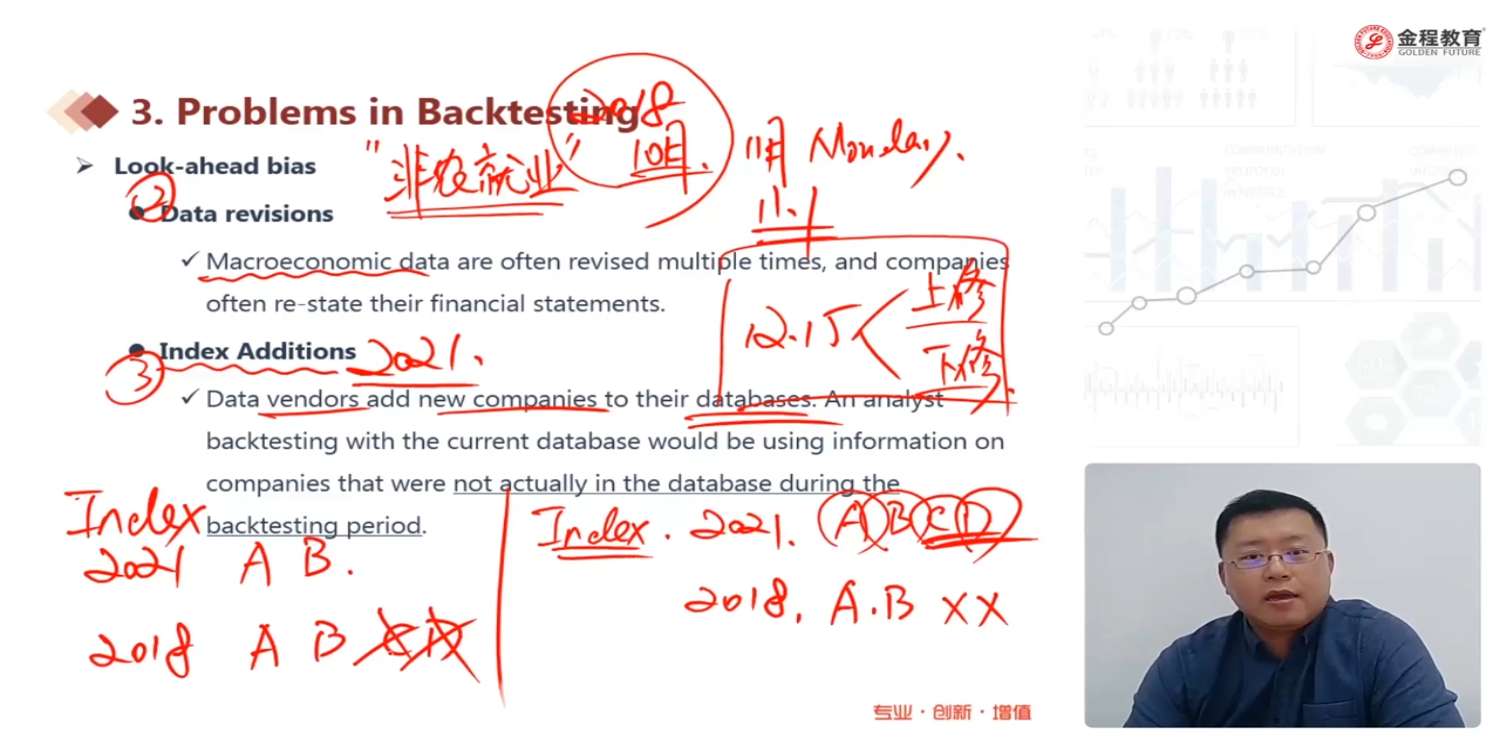 金程教育
GOLDEN FUTURE
3. Problems in Backtesting
2018
10月.
11月 Monday.
Look-ahead bias
"非农就业"
11.1
Data revisions
②
Macroeconomic data are often revised multiple times, and companies
often re-state their financial statements.
12.15
上修
下修
Index Additions
2021.
③
Data vendors add new companies to their databases. An analyst
backtesting with the current database would be using information on
companies that were not actually in the database during the
backtesting period.
Index
2021 A B.
2018 A B
Index. 2021. A B C D
2018. A.B X X
专业·创新·增值